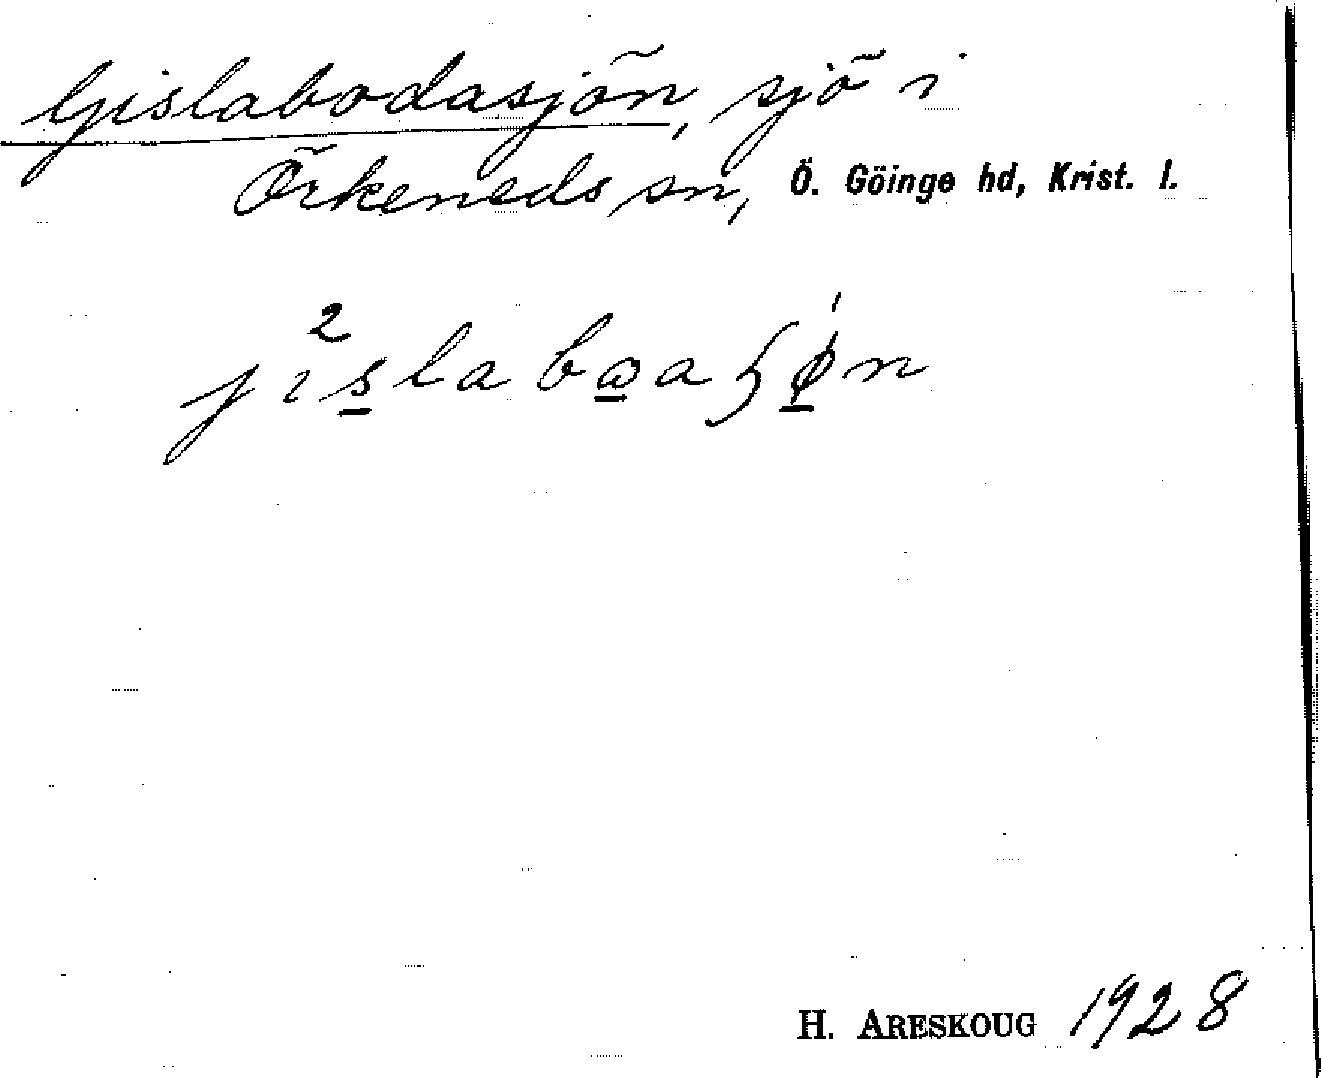 Gislabodasjön, sjö i
Örkeneds sn, Ö. Göinge hd, Krist. l.
H. ARESKOUG 1928